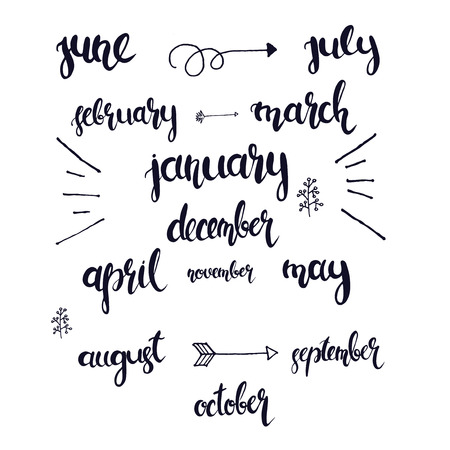 june july
february march
january
december
april november may
august september
october